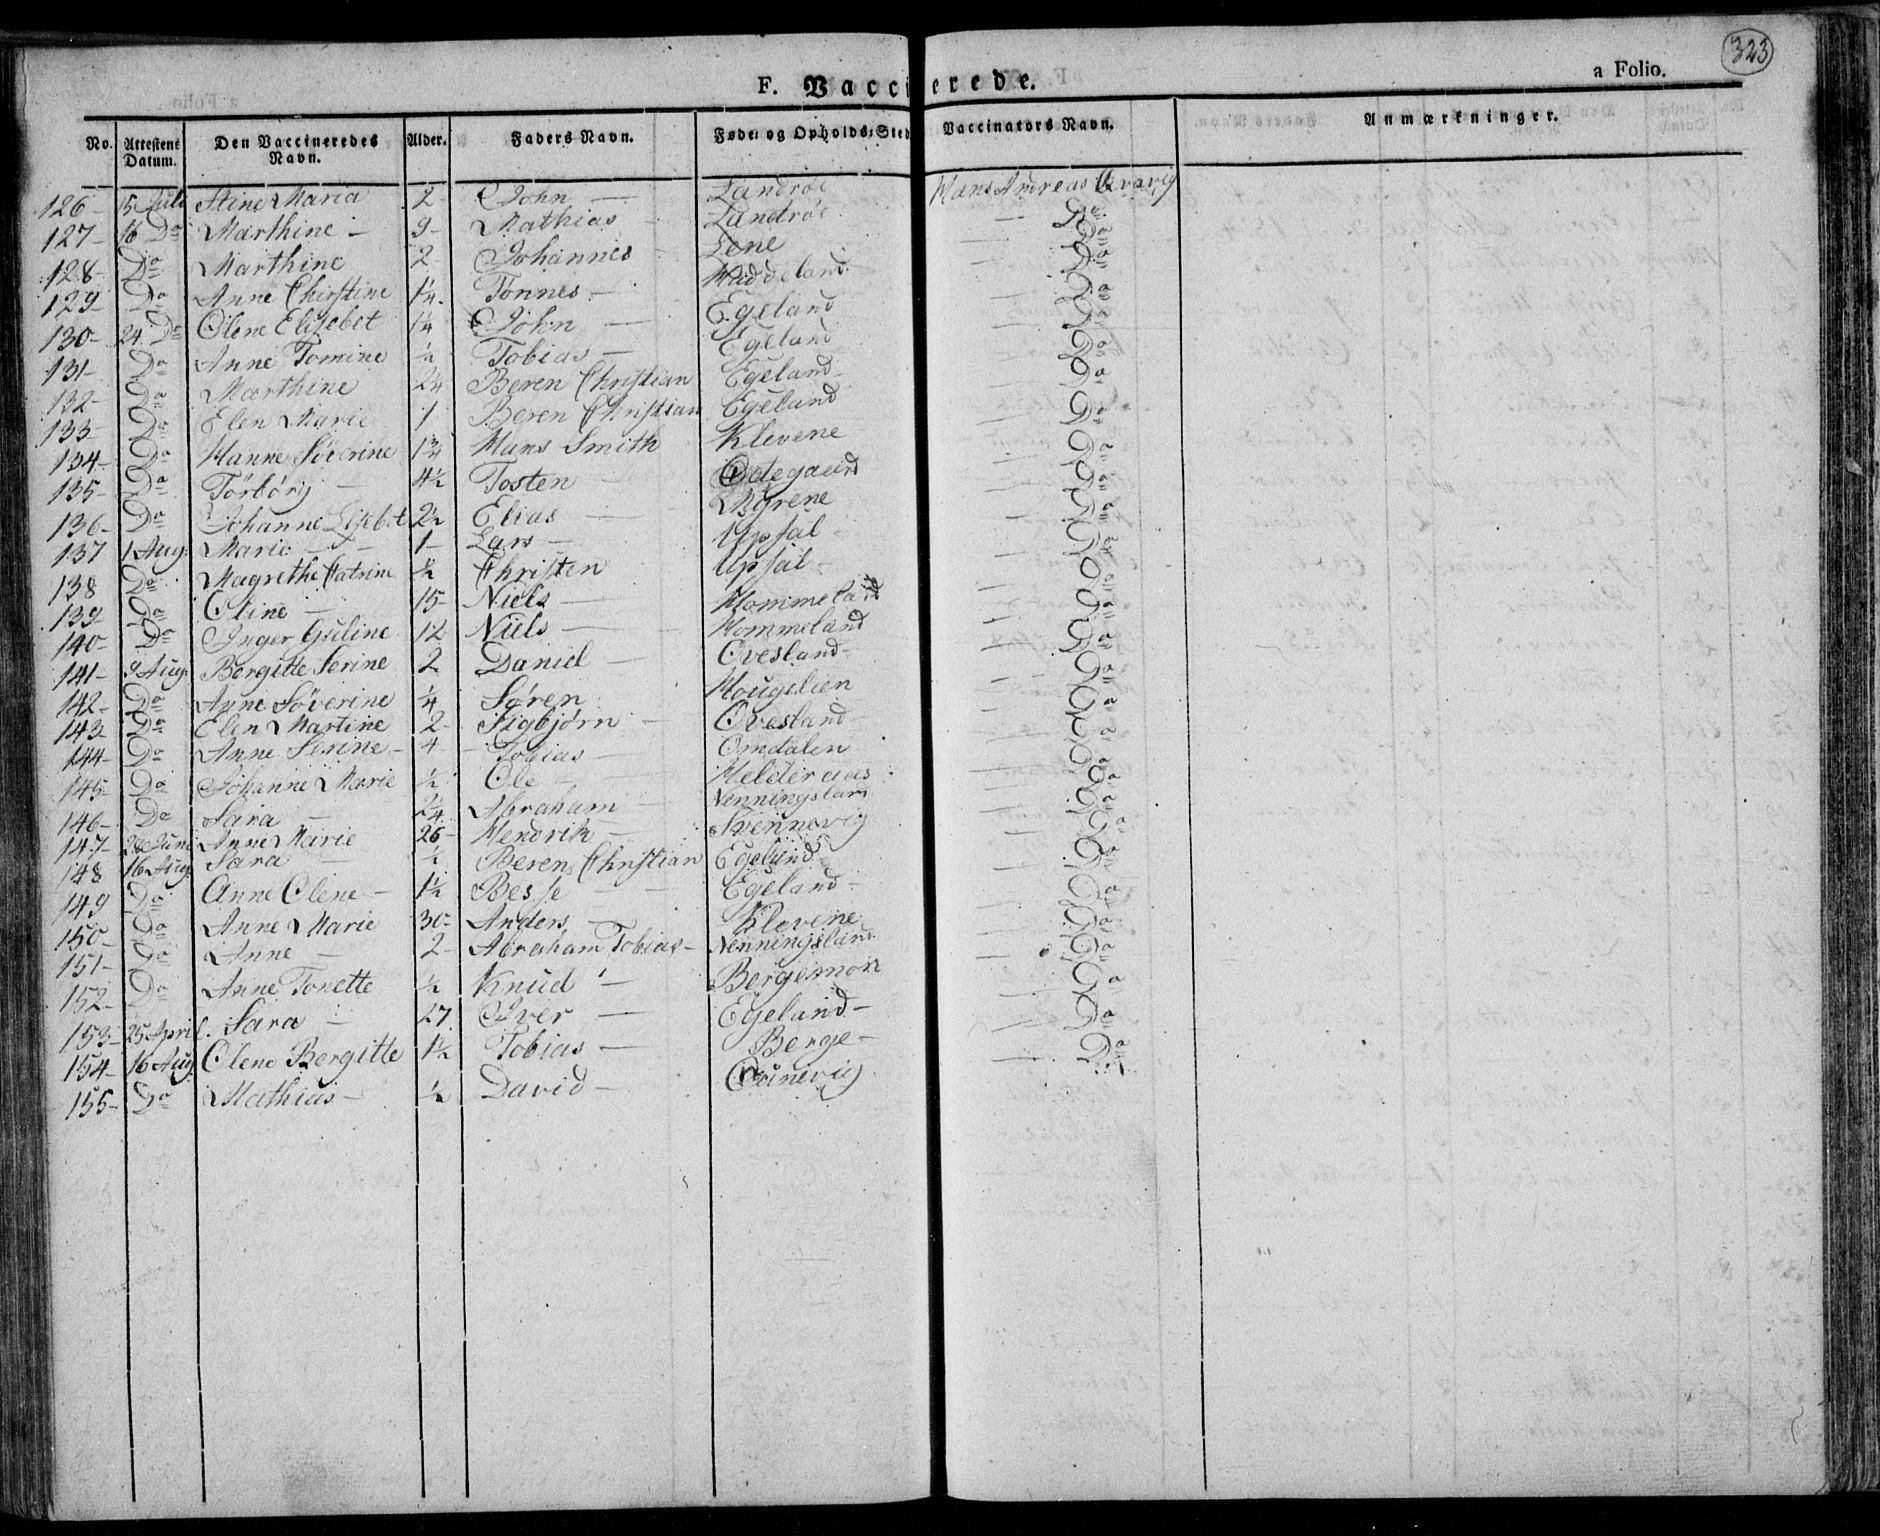 323
F. Vaccinerede.
a Folio.
No. Attestens Datum. Den Vaccineredes Navn. Alder. Faders Navn. Føde- og Opholds-Sted Vaccinators Navn. Anmærkninger.
126- 15 Juli Stine Maria 2 John — Landröe Hans Andreas
127- 16 Do Marthine - 9- Mathias - Landröe — Do
128- Do Marthine 2 Johannes Lene — Do
129- Do Anne Christine 1¼- Tonnes - Haddeland — Do
130- 24 Do Olene Elisebet 1¼ John — Egeland — Do
131- Do Anne Tomine ½ Tobias - Egeland — Do
132- Do Marthine 2¼ Beren Christian Egeland — Do
133- Do Elen Marie 1 Beren Christian Egeland — Do
134- Do Hanne Söverine 1¾ Hans Smith Klevene — Do
135- Do Törbörg - 4½ Tosten - Ödegaard — Do
136- Do Johanne Lisebet 2½ Elias — Myrene — Do
137 1 Aug: Marie - 1- Lars - Upsal — Do
138 Do Magrethe Catrine ½ Christen Upsal — Do
139 Do Oline - 15- Niels — Hommeland — Do
140- Do Inger Guline 12 Niels — Hommeland — Do
141- 9 Aug: Bergitte Serine 2 Daniel — Ovesland — Do
142- Do Anne Söverine ¼ Søren Hougelien — Do
143- Do Elen Martine 2- Sigbjørn - Ovesland — Do
144- Do Anne Serine - 4 Tobias — Omdalen — Do
145- Do Johanne Marie ½ Ole — Helderaas — Do
146- Do Sara - 2¼ Abraham - Nenningsland — Do
147- Juni Anne Marie 26- Hendrik - Svennevig — Do
148 16 Aug. Sara - ½ Beren Christian Egeland — Do
149 Do Anne Olene - 1½ Besse - Egeland — Do
150- Do Anne Marie 30- Anders — Klevene — Do
151- Do Anne - 2- Abraham Tobias - Nenningsland — Do
152- Do Anne Tonette ½ Knud — Bergemon — Do
153- 25 April. Sara - 27 Iver — Egeland - — Do
154- 16 Aug: Olene Bergitte 1½ Tobias — Berge - — Do
155- Do Mathias - ½ David -